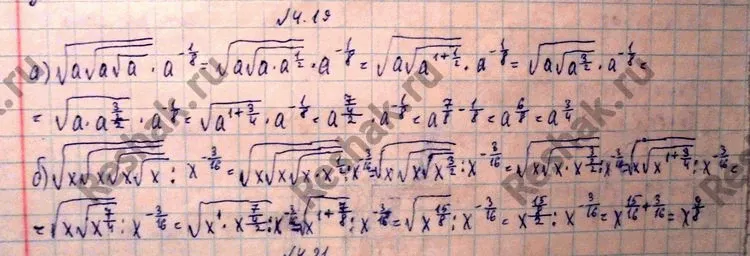 √4.19
а) √a√a√a · a^(-1/8) = √a√a·a^(1/2) · a^(-1/8) = √a√a^(1+1/2) · a^(-1/8) = √a√a^(3/2) · a^(-1/8) =
= √a·a^(3/4) · a^(1/8) = √a^(1+3/4) · a^(-1/8) = a^(7/4/2) · a^(-1/8) = a^(7/8-1/8) = a^(6/8) = a^(3/4)
б) √x√x√x√x : x^(-3/16) = √x√x√x·x^(1/2) : x^(-3/16) = √x·√x√x^(3/2) : x^(-3/16) = √x√x·x^(3/2/2) : x^(-3/16) = √x√x^(1+3/4) : x^(-3/16) =
= √x√x^(7/4) : x^(-3/16) = √x^1·x^(7/4/2) : x^(-3/16) = √x^(1+7/8) : x^(-3/16) = √x^(15/8) : x^(-3/16) = x^(15/8/2) : x^(-3/16) = x^(15/16+3/16) = x^(9/8)
√4.21
Reshak.ru